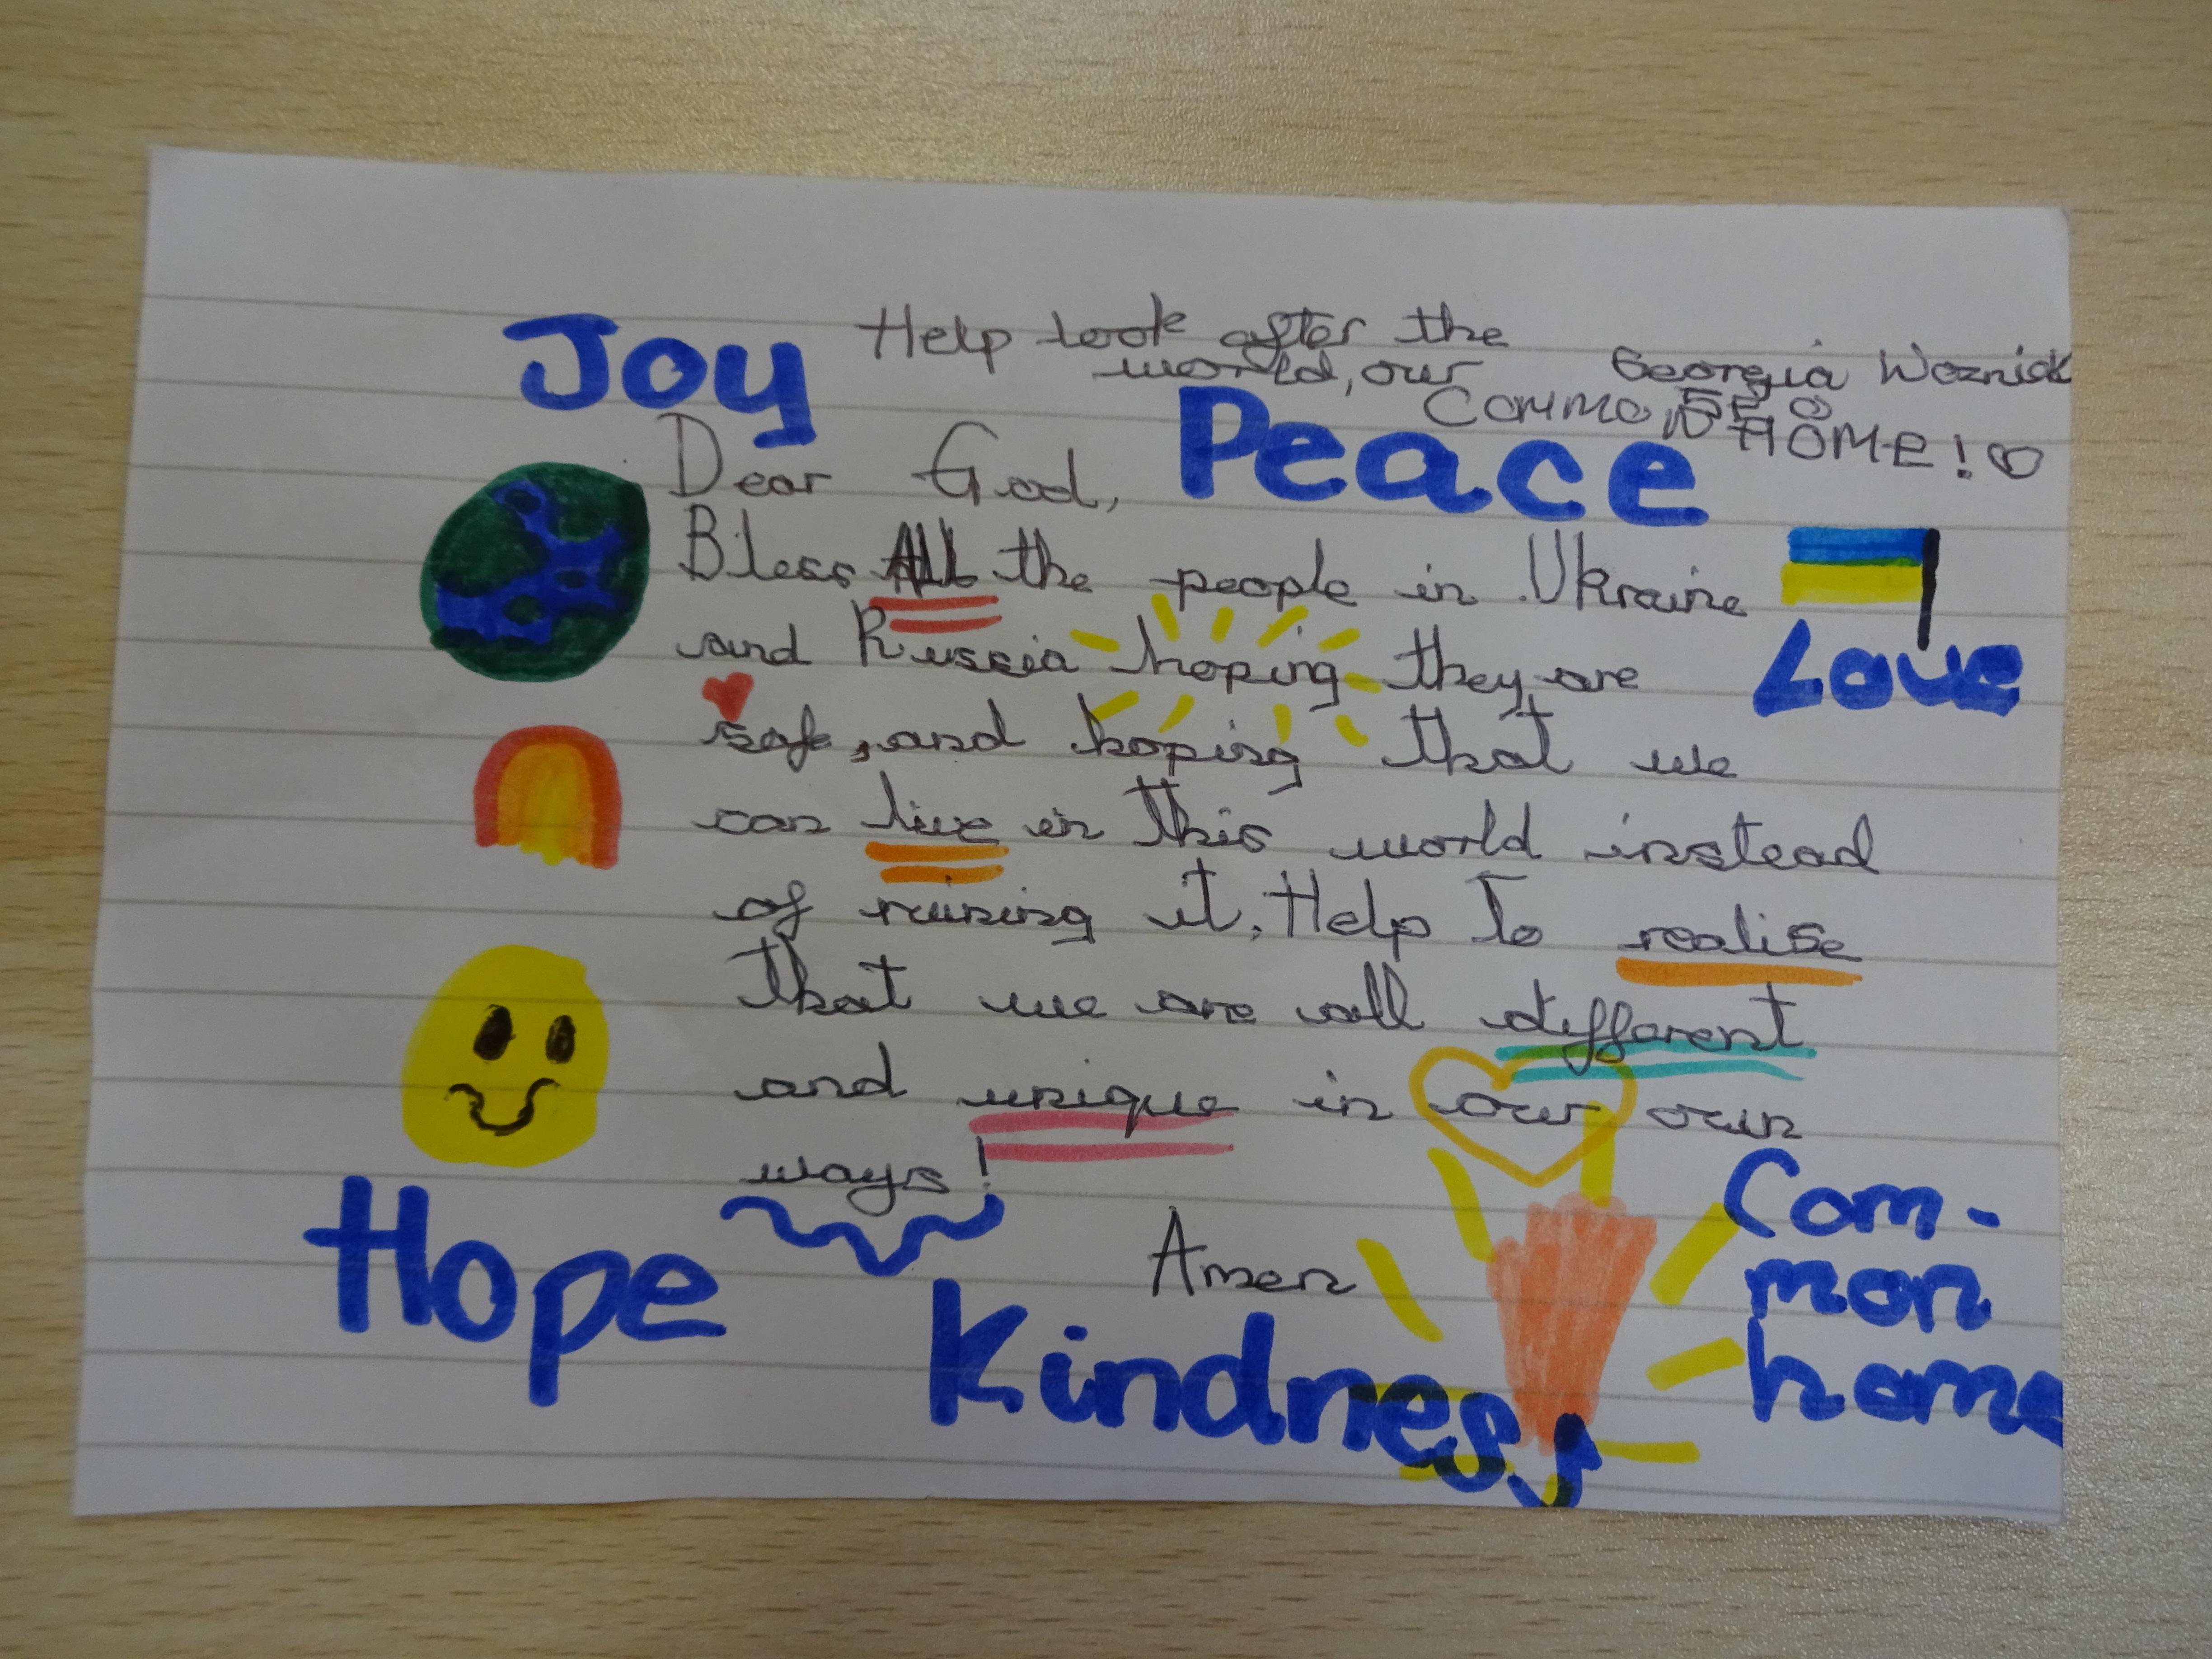 Joy
Help look after the
world, our
Georgia Wozniak
Common HOME!
Peace
Dear God,
Bless All the people in Ukraine
and Russia hoping they are
Love
safe, and hoping that we
can live in this world instead
of ruining it. Help to realise
that we are all different
and unique in our own
ways!
Com-
mon
home
Hope
Amen
Kindness